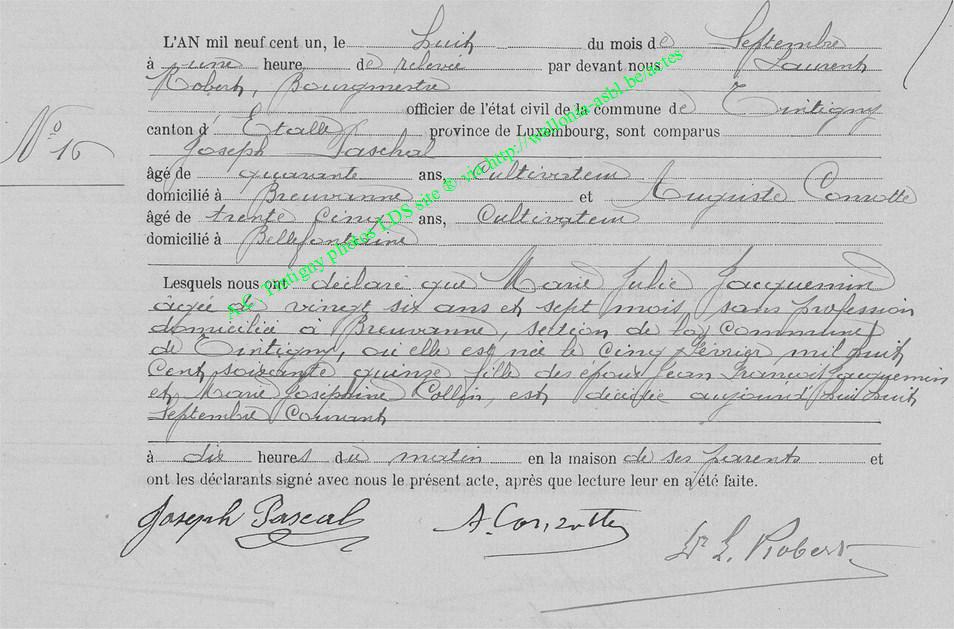 L'AN mil neuf cent un, le huit du mois de Septembre
à une heure, de relevée par devant nous Laurent
Robert, Bourgmestre
officier de l'état civil de la commune de Tintigny
N° 16
canton d' Etalle province de Luxembourg, sont comparus
Joseph Paschal
âgé de quarante ans, Cultivateur
domicilié à Breuvanne et Auguste
âgé de trente cinq ans, Cultivateur
domicilié à Bellefontaine
Lesquels nous ont déclaré que Marie Julie Jacquemin
agée de vingt six ans et sept mois, sans profession
domiciliée à Breuvanne, section de la Commune
de Tintigny, où elle est née le Cinq février mil huit
Cent soixante quinze fille des époux Jean François Jacquemin
et Marie Joséphine Collin, est décédée aujourd'hui huit
Septembre Courant
à dix heures du matin en la maison de ses parents et
ont les déclarants signé avec nous le présent acte, après que lecture leur en a été faite.
Joseph Pascal
Dr L. Robert
A.C. Tintigny photos LDS site ® via http://wallonia-asbl.be/actes